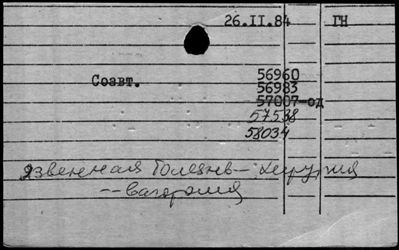 26.II.84 ГН
Соавт. 56960
56983
57007-од
57538
58034
язвенная болезнь - хирургия
-- ваготомия